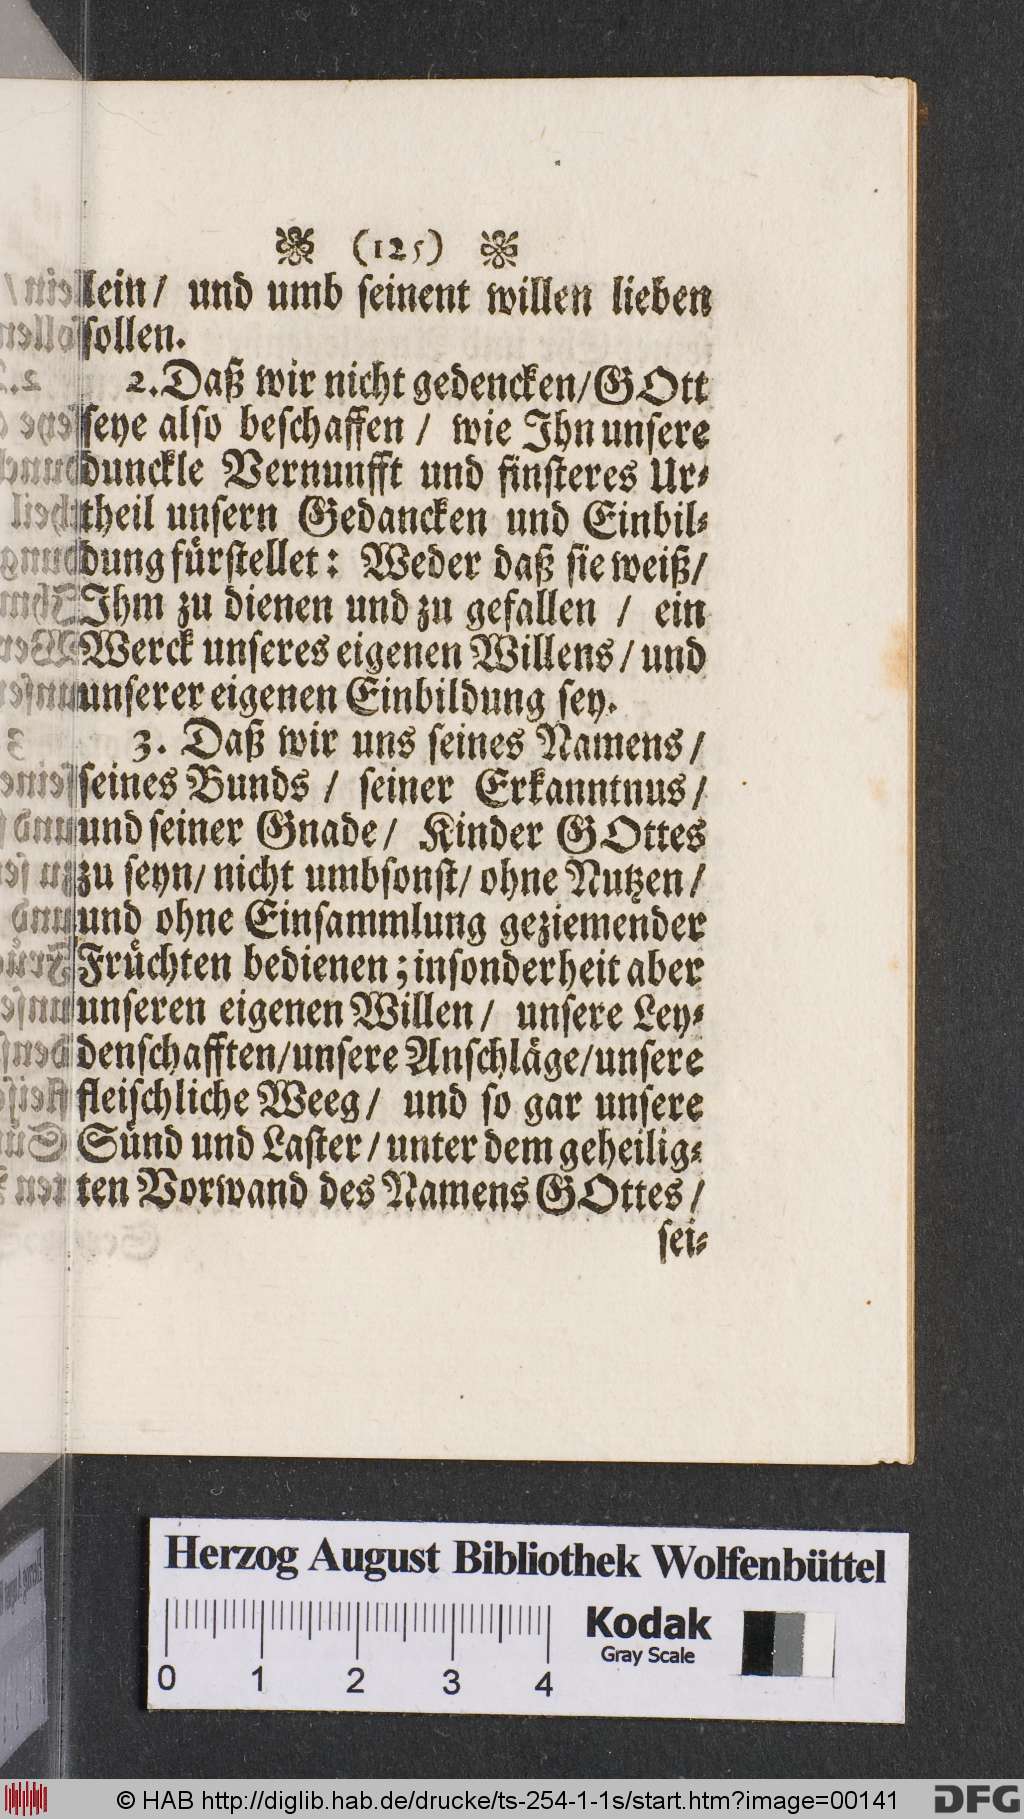 (125)
lein/ und umb seinent willen lieben
sollen.
2. Daß wir nicht gedencken/ GOtt
seye also beschaffen / wie Ihn unsere
dunckle Vernunfft und finsteres Ur-
theil unsern Gedancken und Einbil-
dung fürstellet: Weder daß sie weiß/
Ihm zu dienen und zu gefallen / ein
Werck unseres eigenen Willens / und
unserer eigenen Einbildung sey.
3. Daß wir uns seines Namens /
seines Bunds / seiner Erkanntnus /
und seiner Gnade / Kinder GOttes
zu seyn/ nicht umbsonst/ ohne Nutzen /
und ohne Einsammlung geziemender
Früchten bedienen; insonderheit aber
unseren eigenen Willen / unsere Ley-
denschafften/unsere Anschläge/unsere
fleischliche Weeg / und so gar unsere
Sünd und Laster / unter dem geheilig-
ten Vorwand des Namens GOttes /
sei-
Herzog August Bibliothek Wolfenbüttel
Kodak
Gray Scale
0 1 2 3 4
© HAB http://diglib.hab.de/drucke/ts-254-1-1s/start.htm?image=00141
DFG